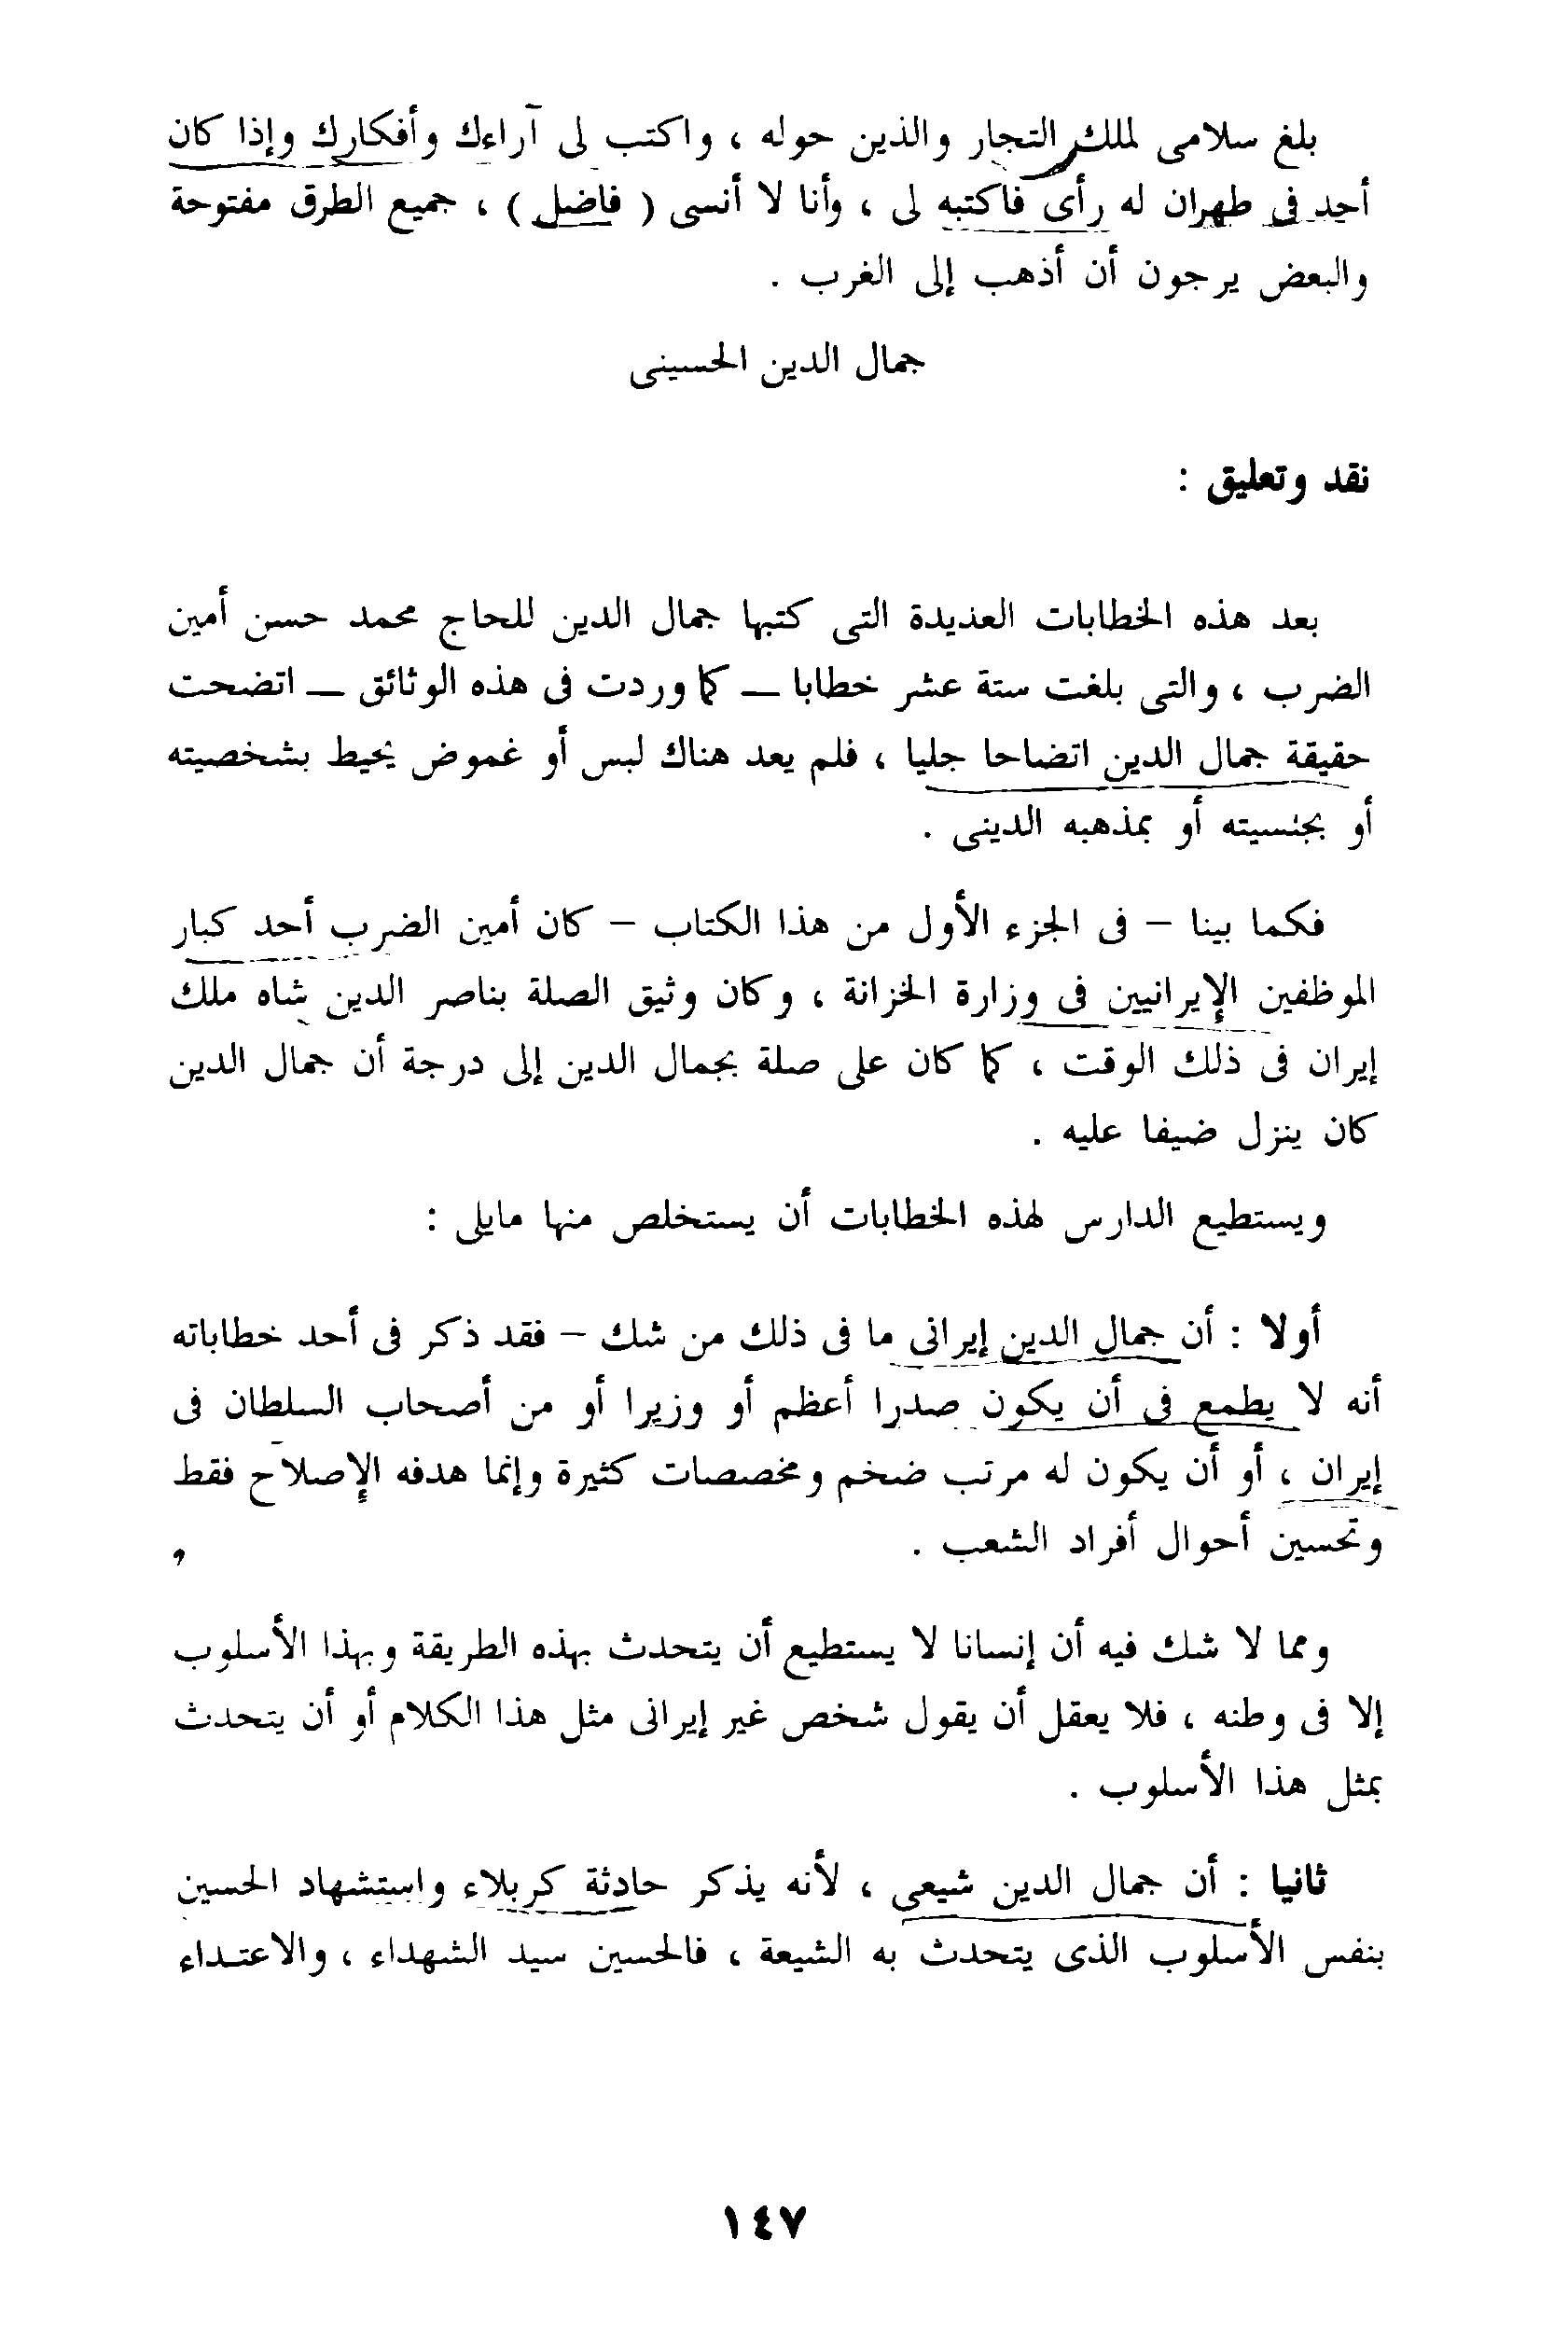 بلغ سلامى لملك التجار والذين حوله ، واكتب لى آراءك وأفكارك وإذا كان
أحد فى طهران له رأى فاكتبه لى ، وأنا لا أنسى ( فاضل ) ، جميع الطرق مفتوحة
والبعض يرجون أن أذهب إلى الغرب .
جمال الدين الحسينى
نقد وتعليق :
بعد هذه الخطابات العديدة التى كتبها جمال الدين للحاج محمد حسن أمين
الضرب ، والتى بلغت ستة عشر خطابا — كما وردت فى هذه الوثائق — اتضحت
حقيقة جمال الدين اتضاحا جليا ، فلم يعد هناك لبس أو غموض يحيط بشخصيته
أو بجنسيته أو بمذهبه الدينى .
فكما بينا – فى الجزء الأول من هذا الكتاب – كان أمين الضرب أحد كبار
الموظفين الإيرانيين فى وزارة الخزانة ، وكان وثيق الصلة بناصر الدين شاه ملك
إيران فى ذلك الوقت ، كما كان على صلة بجمال الدين إلى درجة أن جمال الدين
كان ينزل ضيفا عليه .
ويستطيع الدارس لهذه الخطابات أن يستخلص منها مايلى :
أولا : أن جمال الدين إيرانى ما فى ذلك من شك – فقد ذكر فى أحد خطاباته
أنه لا يطمع فى أن يكون صدرا أعظم أو وزيرا أو من أصحاب السلطان فى
إيران ، أو أن يكون له مرتب ضخم ومخصصات كثيرة وإنما هدفه الإصلاح فقط
وتحسين أحوال أفراد الشعب .
ومما لا شك فيه أن إنسانا لا يستطيع أن يتحدث بهذه الطريقة وبهذا الأسلوب
إلا فى وطنه ، فلا يعقل أن يقول شخص غير إيرانى مثل هذا الكلام أو أن يتحدث
بمثل هذا الأسلوب .
ثانيا : أن جمال الدين شيعى ، لأنه يذكر حادثة كربلاء واستشهاد الحسين
بنفس الأسلوب الذى يتحدث به الشيعة ، فالحسين سيد الشهداء ، والاعتداء
١٤٧